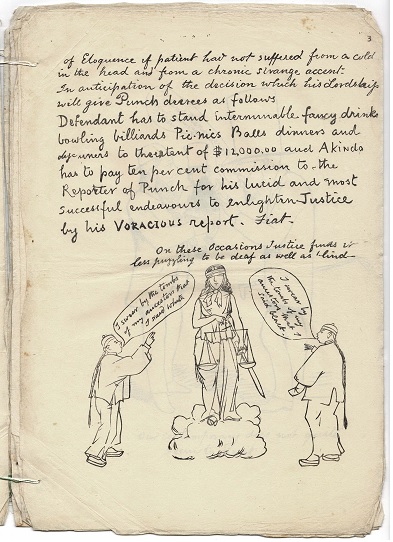 3
of Eloquence if patient had not suffered from a cold
in the head and from a chronic strange accent.
In anticipation of the decision which his Lordship
will give Punch decrees as follows
Defendant has to stand interminable fancy drinks
bowling billiards Pic-nics Balls dinners and
dejeuners to the extent of $12,000.00 and Akindo
has to pay ten per cent commission to the
Reporter of Punch for his lucid and most
successful endeavours to enlighten Justice
by his VORACIOUS report. Fiat.
On these Occasions Justice finds it
less puzzling to be deaf as well as blind
I swear by the tombs
of my ancestors that
I said white
I swear by
the tombs of my
ancestors that I
said black